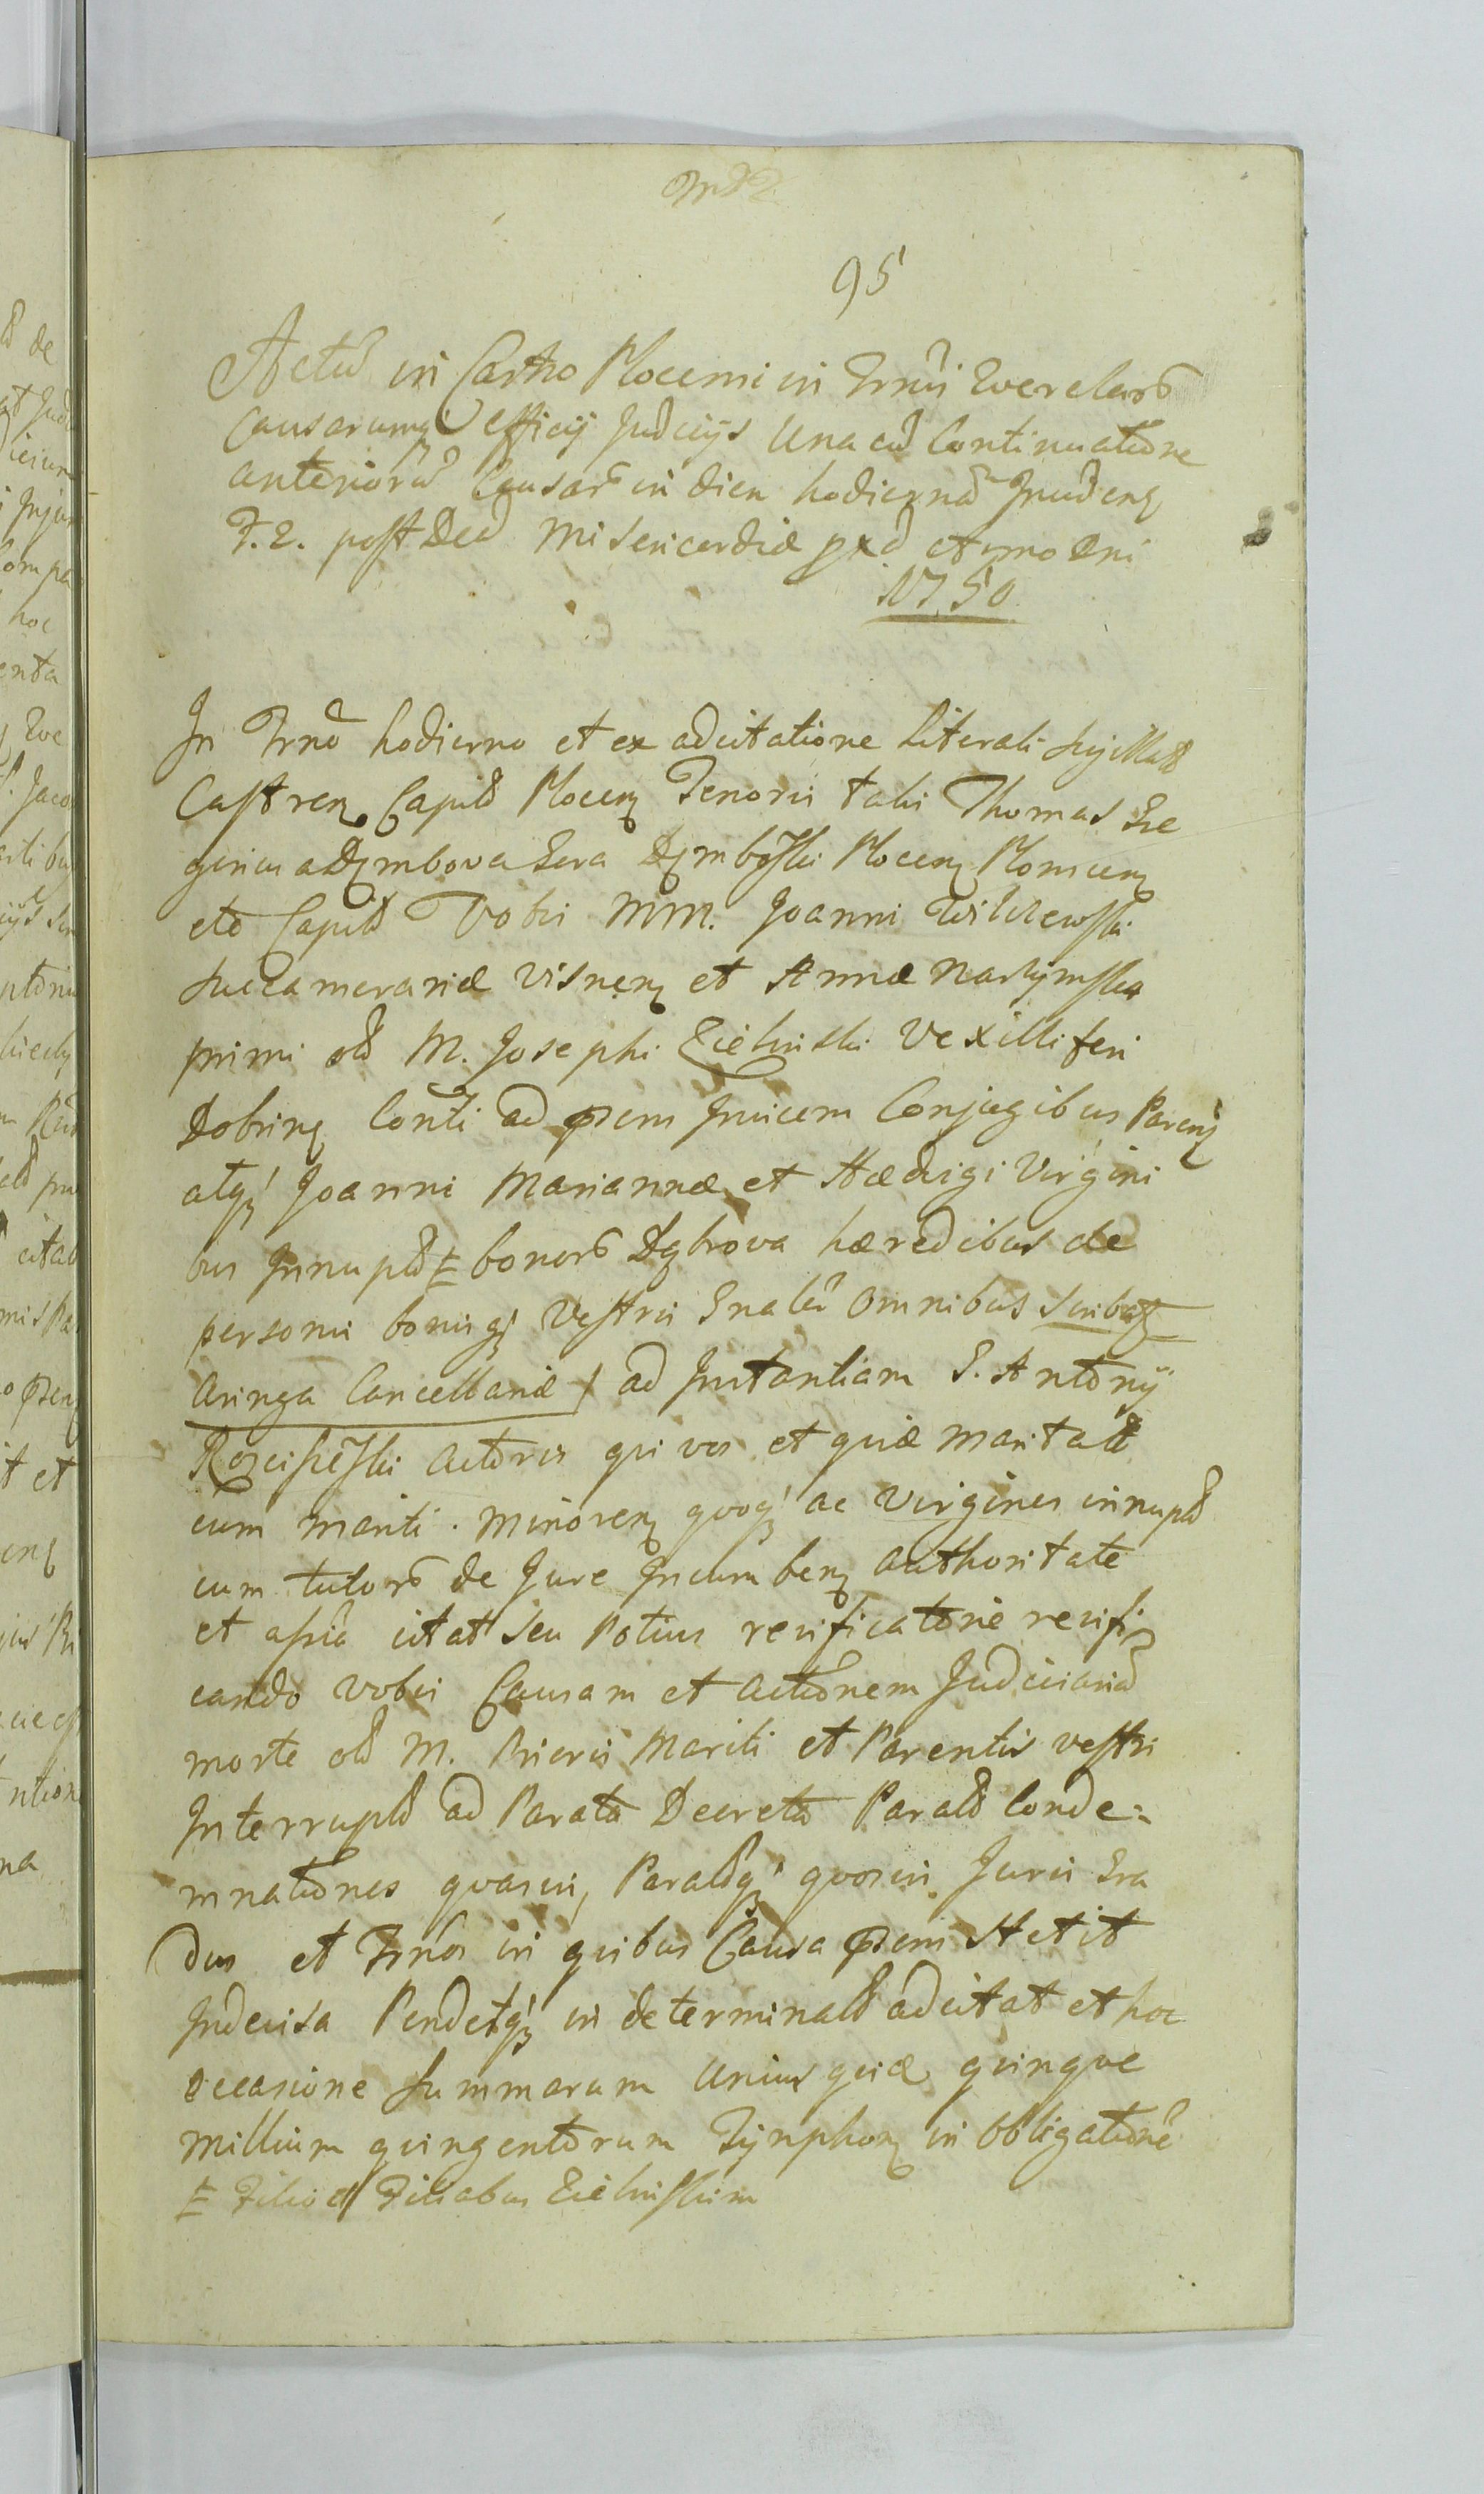 95
Actũ in Castro Plocensi in Trnis Querelarũ
Causarumq̃ officij Judicijs Una cũ Continuatione
anteriorũ Causarũ in diem hodiernã Inciden
F. 2. post Dcã Misericordiæ pxã Anno Dni
1750
In Trnõ hodierno et ex adcitatione literali sigillat
Castren Capit Plocen Tenoris talis Thomas Gre
gorius a Dymbowa Gora Dymboski Plocen Plonscen
etc Capit Vobis MM. Joanni Wilczewski
Succamerariæ Visnen et Annæ Narzymska
primi olt M. Josephi Zielinski Vexilliferi
Dobrin Conti ad psens Invicem Conjugibus Paren
atq̃ Joanni Mariannæ et Hædvigi Virgini
bus Innupt bonorũ Dąbrova hæredibus de
personis bonisq̃ Vestris Gnalr̃ Omnibus Scribat
Aringa Cancellariæ / ad Instantiam G. Antonij
Rosciszeski Actoris qui vos et quidem Maritat
cum mariti. Minoren quoq̃ ac Virgines innupt
cum tutorũ de Jure Incumben authoritate
et assiã citat seu Potius reificatorie reifi
cando Vobis Causam et actionem Judiciariã
morte olt M. Prioris Mariti et Parentis vestri
Interrupt ad Parata Decreta Parat Conde:
mnationes quasvis, Paratosq̃ quosvis Juris Gra
dus et Trnos in quibus Causa psens Stetit
Indecisa Pendetq̃ in determinat adcitat et hoc
occasione Summarum Unius quidem quinque
Millium quingentorum Tynphon in Obligatione
Filio et Filiabus Zielinskim